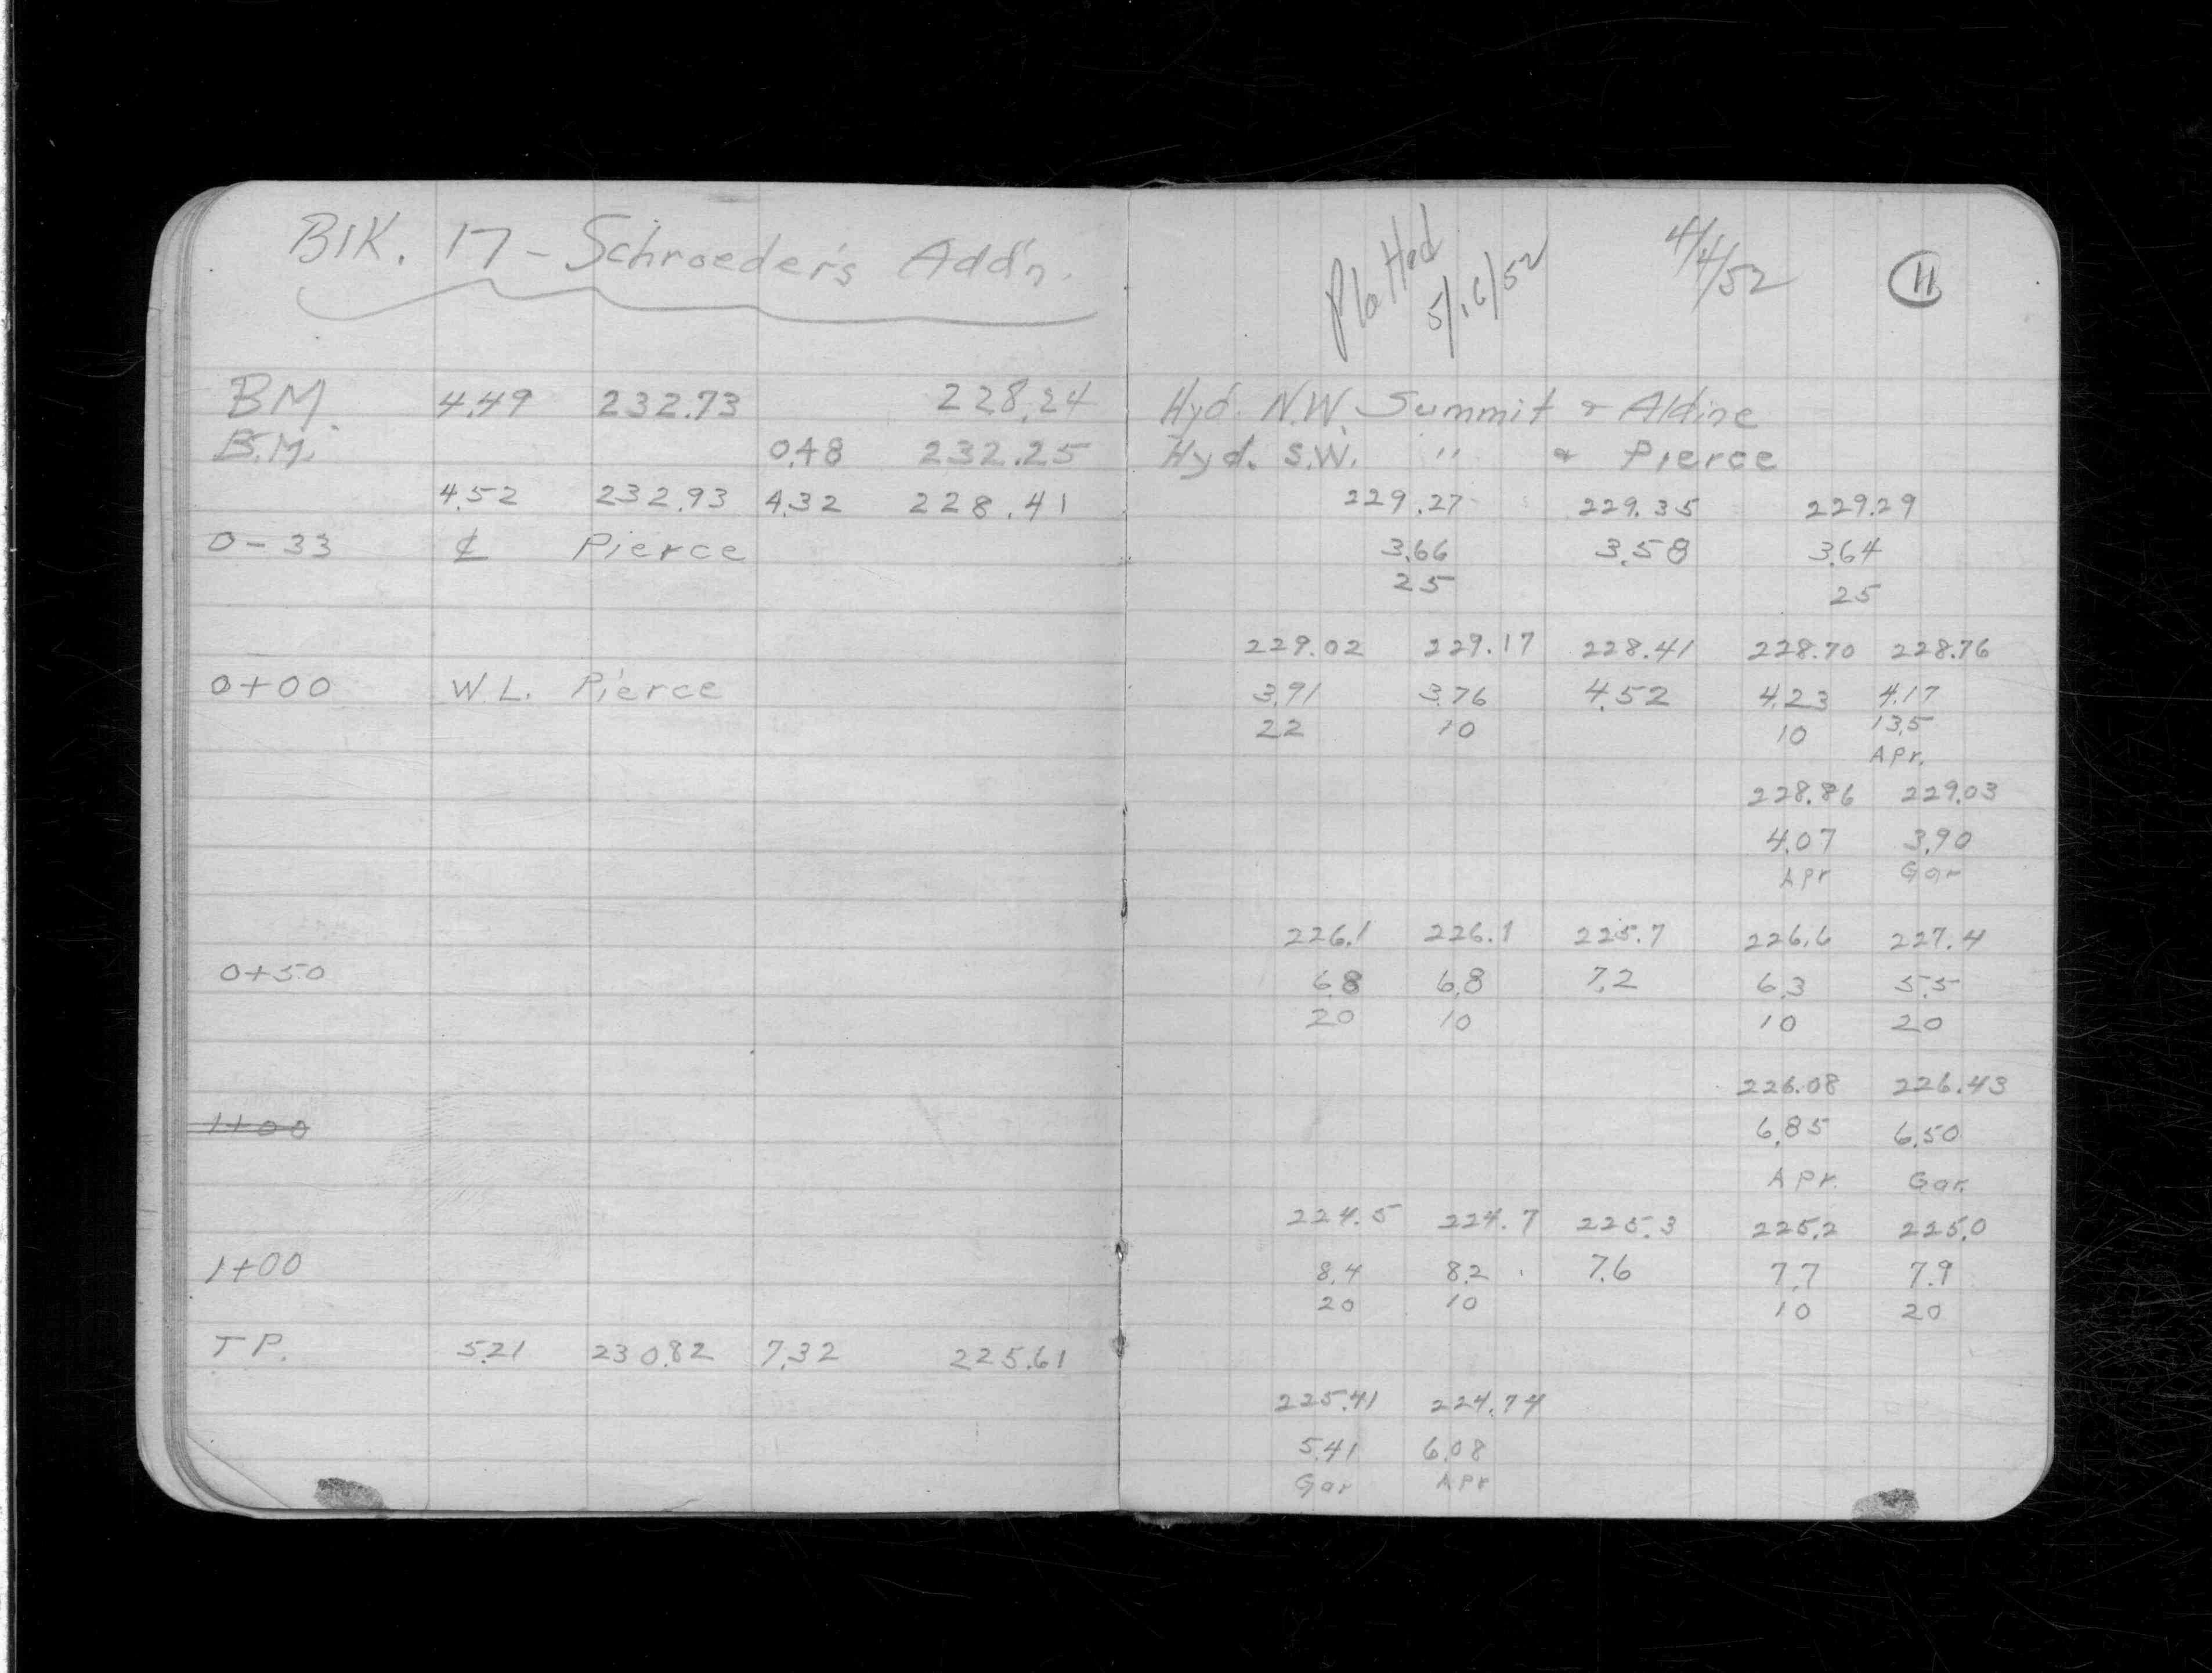 Blk. 17 - Schroeder's Add'n.
BM 4.49 232.73 228.24
B.M. 0.48 232.25
4.52 232.93 4.32 228.41
0-33 ℄ Pierce
0+00 W.L. Pierce
0+50
1+00
1+00
T P. 5.21 230.82 7.32 225.61
Plotted 4/4/52 11
5/16/52
Hyd. N.W. Summit & Aldine
Hyd. S.W. " & Pierce
229.27 229.35 229.29
3.66 3.58 3.64
25 25
229.02 229.17 228.41 228.70 228.76
3.91 3.76 4.52 4.23 4.17
22 10 10 13.5
Apr.
228.86 229.03
4.07 3.90
Apr Gar
226.1 226.1 225.7 226.6 227.4
6.8 6.8 7.2 6.3 5.5
20 10 10 20
226.08 226.43
6.85 6.50
Apr. Gar.
224.5 224.7 225.3 225.2 225.0
8.4 8.2 7.6 7.7 7.9
20 10 10 20
225.41 224.74
5.41 6.08
Gar Apr